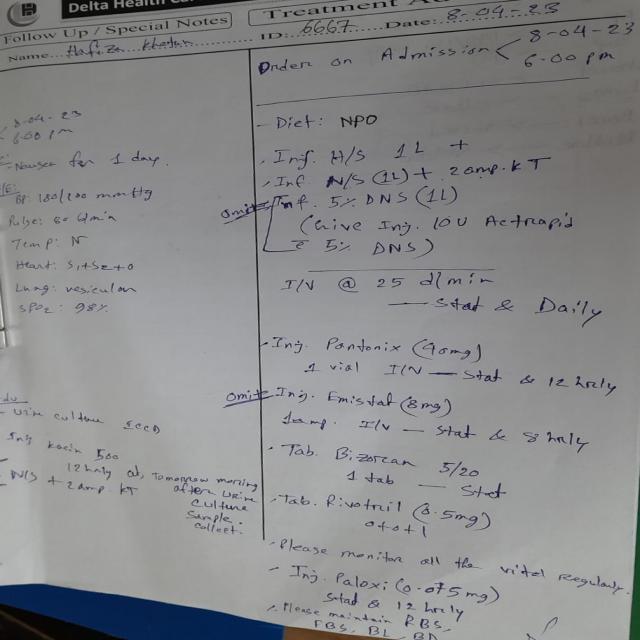 Delta Health
Follow Up / Special Notes
Treatment
ID: 6667 Date: 8-04-23
Name: Hafiza Khatun
Order on Admission < 8-04-23
6.00 pm
8-04-23
6.00 pm
for 1 day.
BP: 180/100 mmHg
Pulse: 80 b/min
Temp: N
Heart: S1+S2+0
Lung: vesicular
SPO2: 98%
urine culture
Inj 500
12 hrly
tomorrow morning
after urine
culture
sample
collect.
N/S + 2 amp KT
- Diet: NPO
. Inf. H/S 1L +
. Inf. N/S (1L) + 2amp. KT
omit Inf. 5% DNS (1L)
(Give Inj. 10U Actrapid
c̄ 5% DNS)
I/V @ 25 d/min
— Stat & Daily
. Inj. Pantonix (40mg)
1 vial I/V — Stat & 12 hrly
omit Inj. Emistat (8mg)
1amp. I/V — Stat & 8 hrly
. Tab. Bizoran 5/20
1 tab — Stat
. Tab. Rivotril (0.5mg)
0+0+1
. Please monitor all the vital regularly.
. Inj. Paloxi (0.075mg)
Stat & 12 hrly
. Please maintain RBS.
FBS, BL, BD